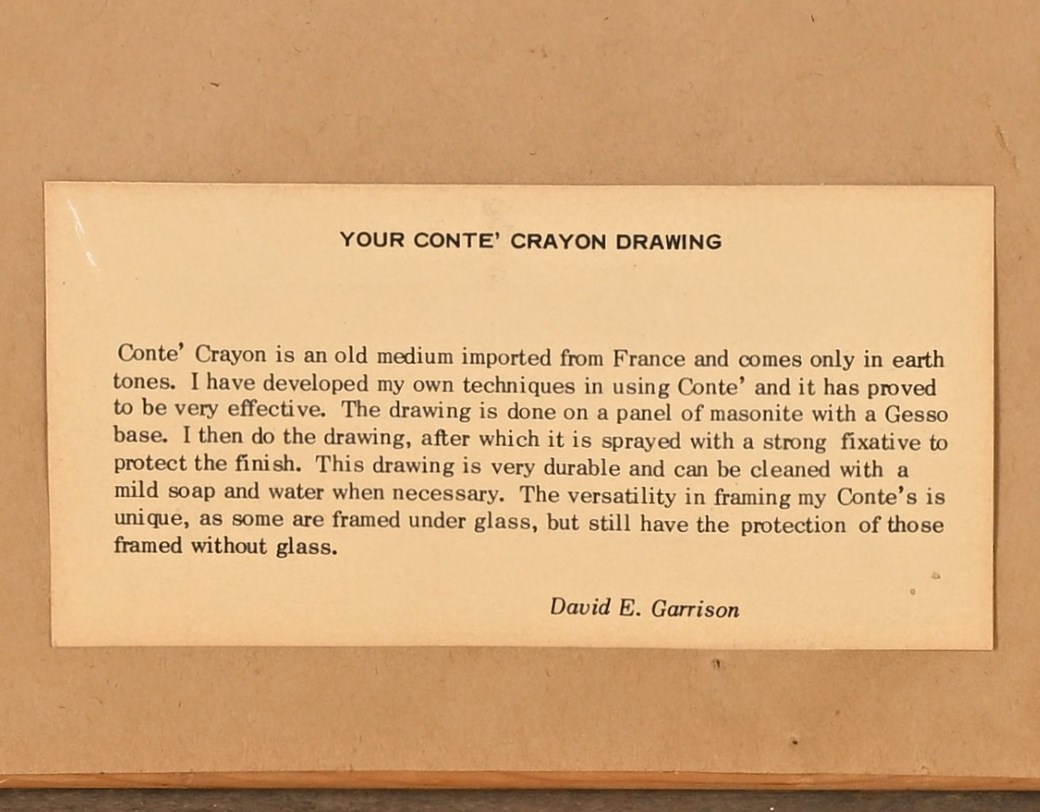 YOUR CONTE' CRAYON DRAWING
Conte' Crayon is an old medium imported from France and comes only in earth
tones. I have developed my own techniques in using Conte' and it has proved
to be very effective. The drawing is done on a panel of masonite with a Gesso
base. I then do the drawing, after which it is sprayed with a strong fixative to
protect the finish. This drawing is very durable and can be cleaned with a
mild soap and water when necessary. The versatility in framing my Conte's is
unique, as some are framed under glass, but still have the protection of those
framed without glass.
David E. Garrison